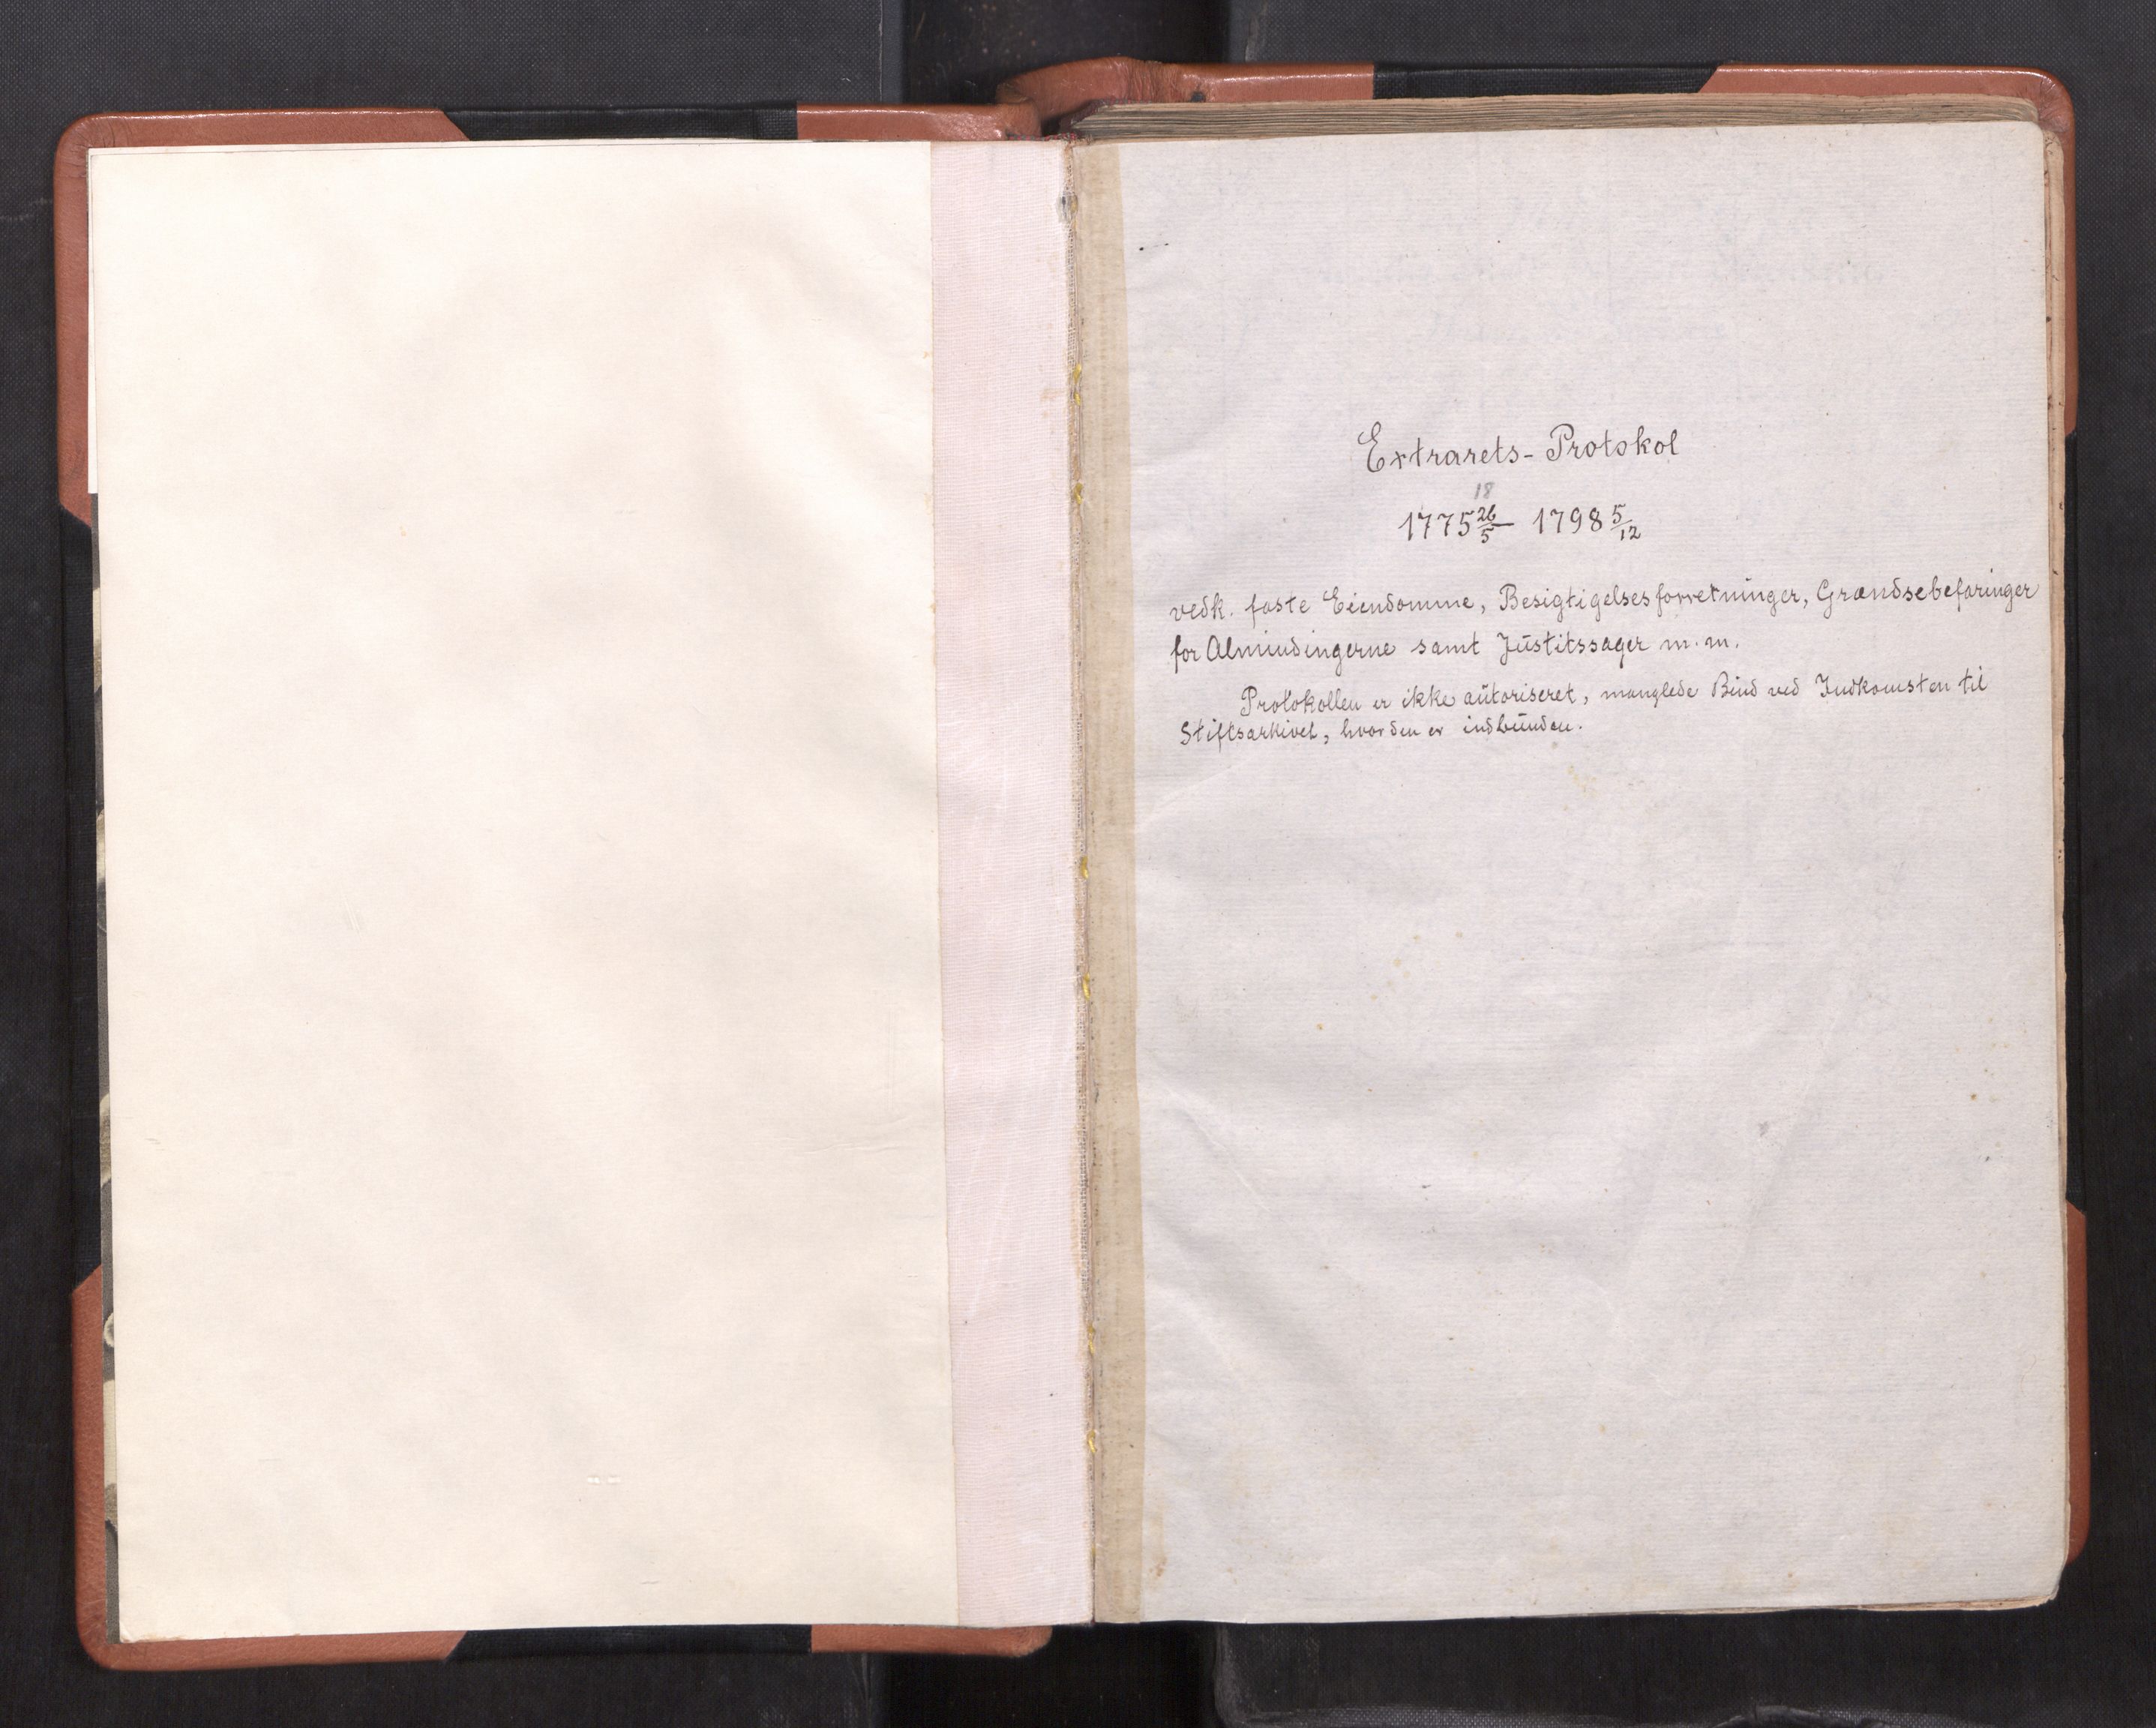 Extrarets-Protokol
18
1775 26/5 - 1798 5/12
vedk. faste Eiendomme, Besigtigelsesforretninger, Grændsebefaringer
for Almindingerne samt Justitssager m.m.
Protokollen er ikke autoriseret, manglede Bind ved Indkomsten til
Stiftsarkivet, hvor den er indbunden.